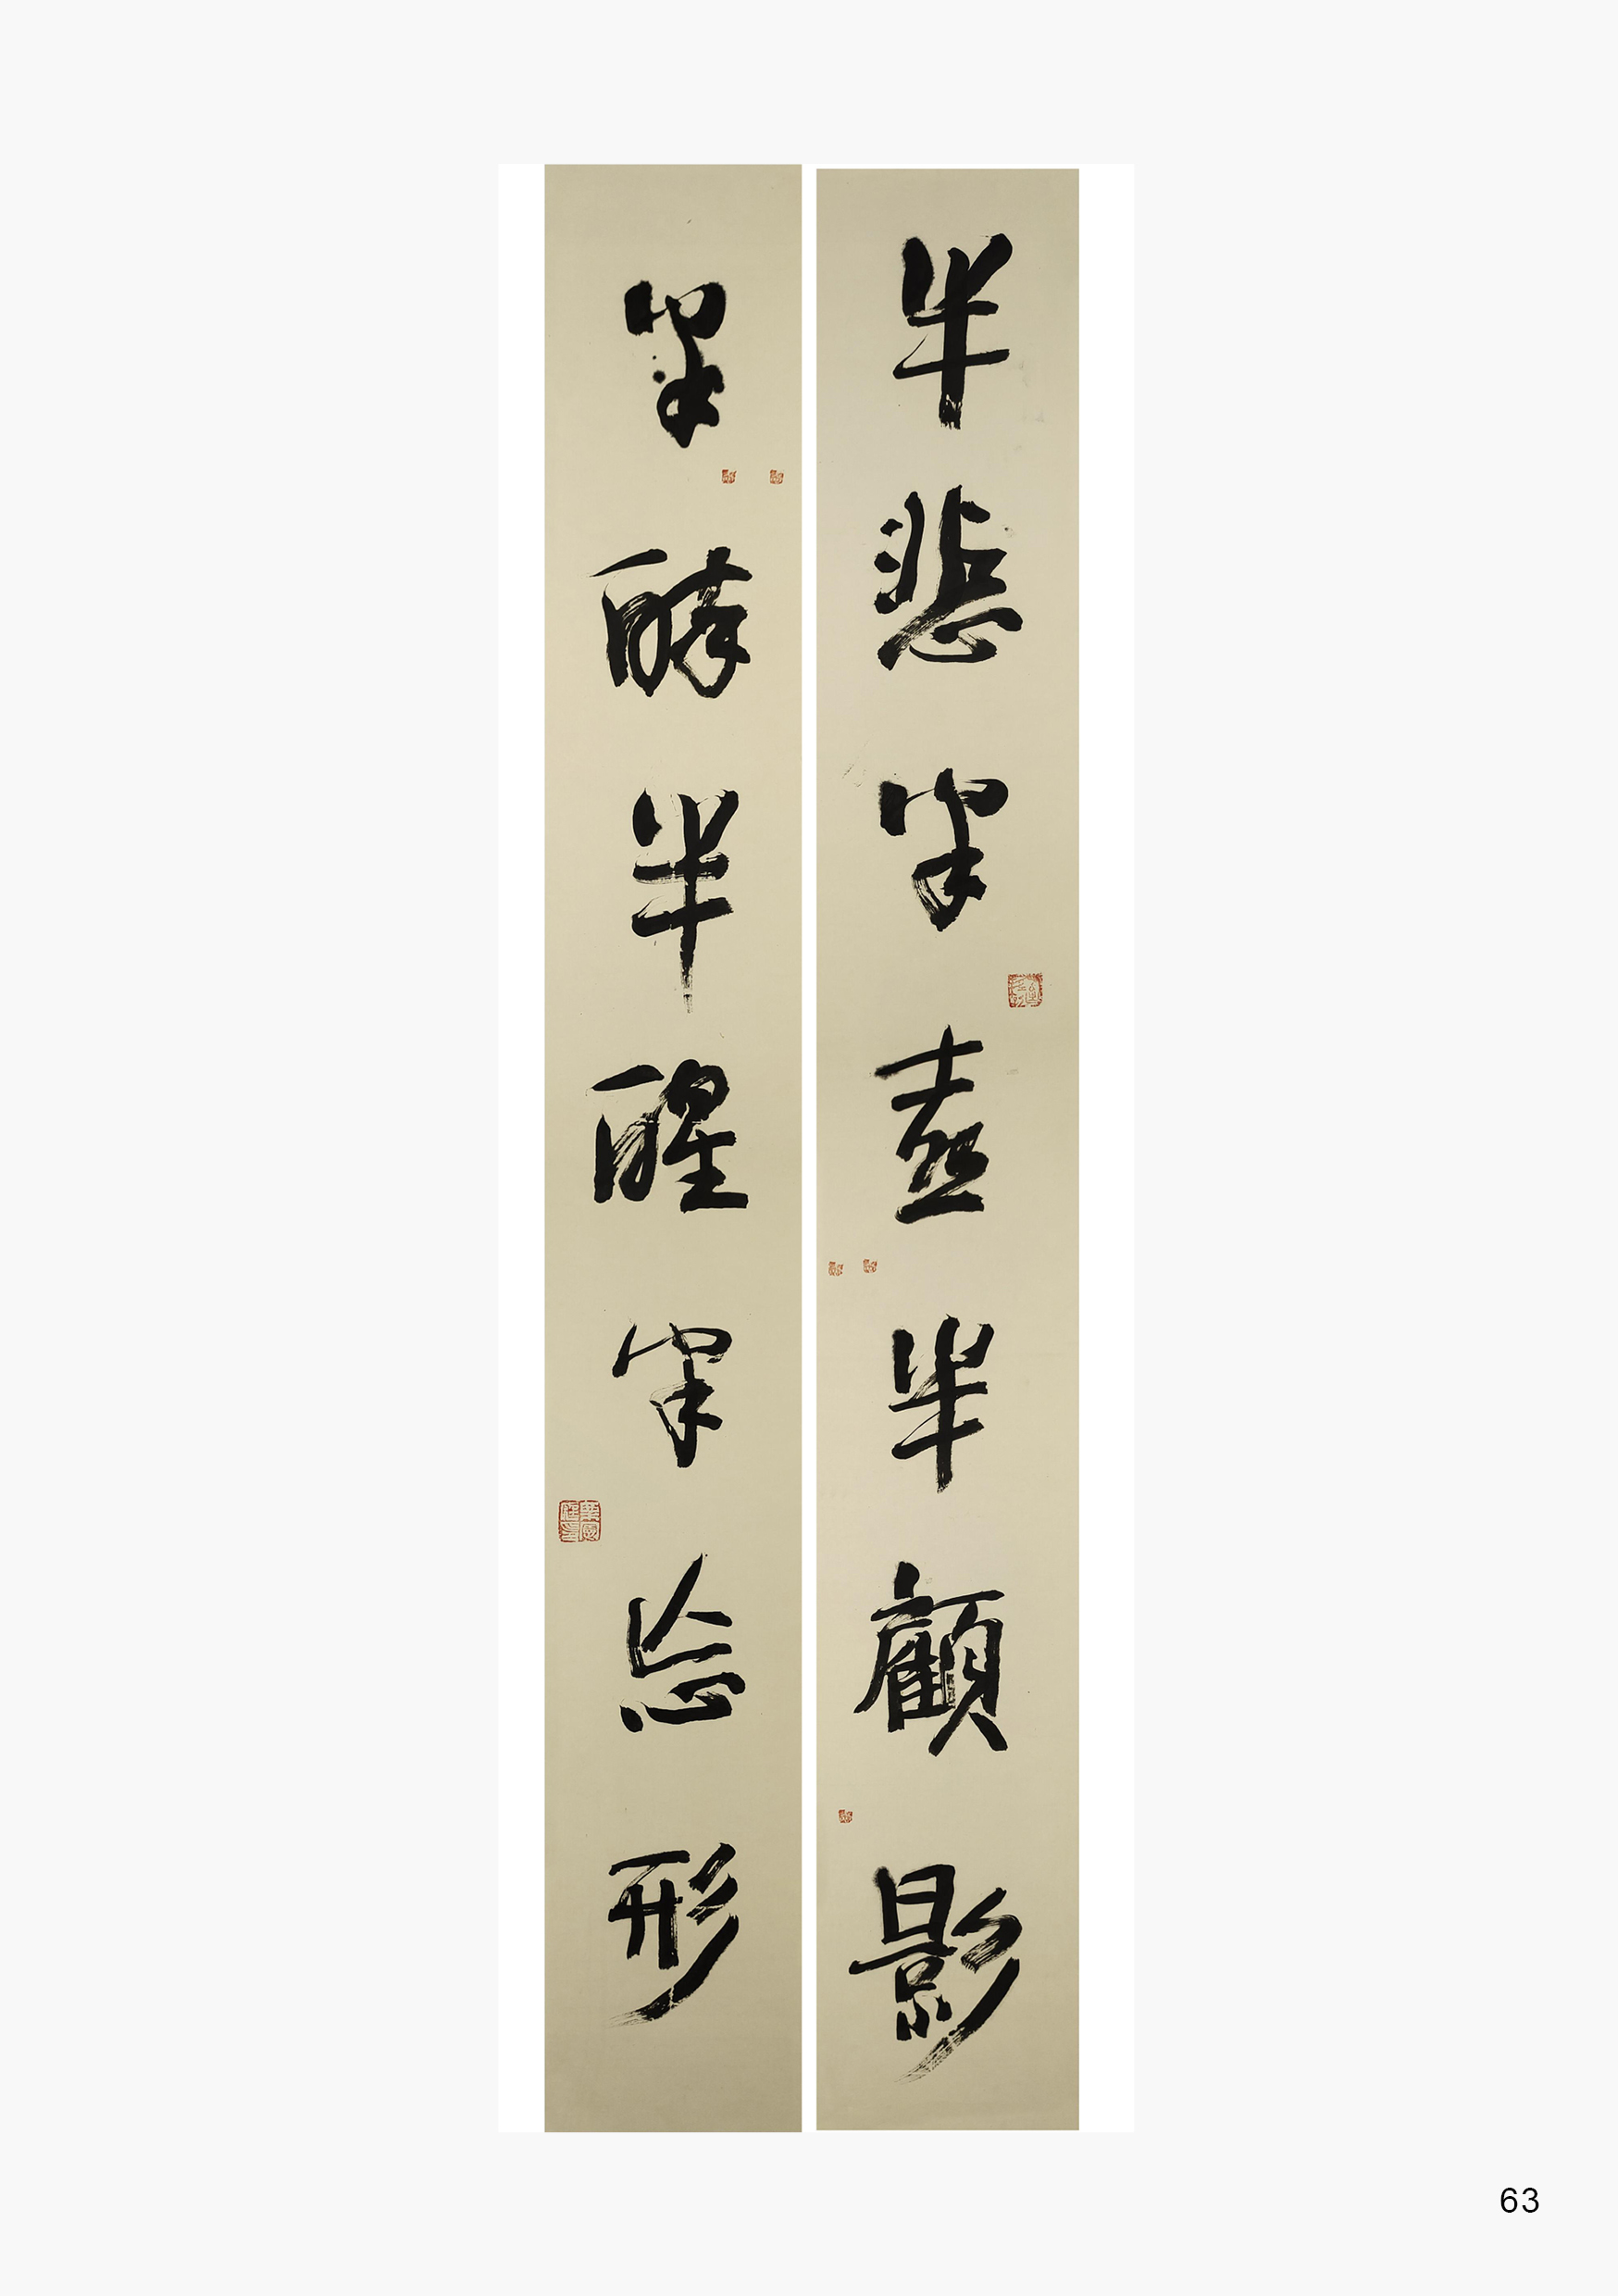 半悲半喜半顧影
半醉半醒半忘形
63